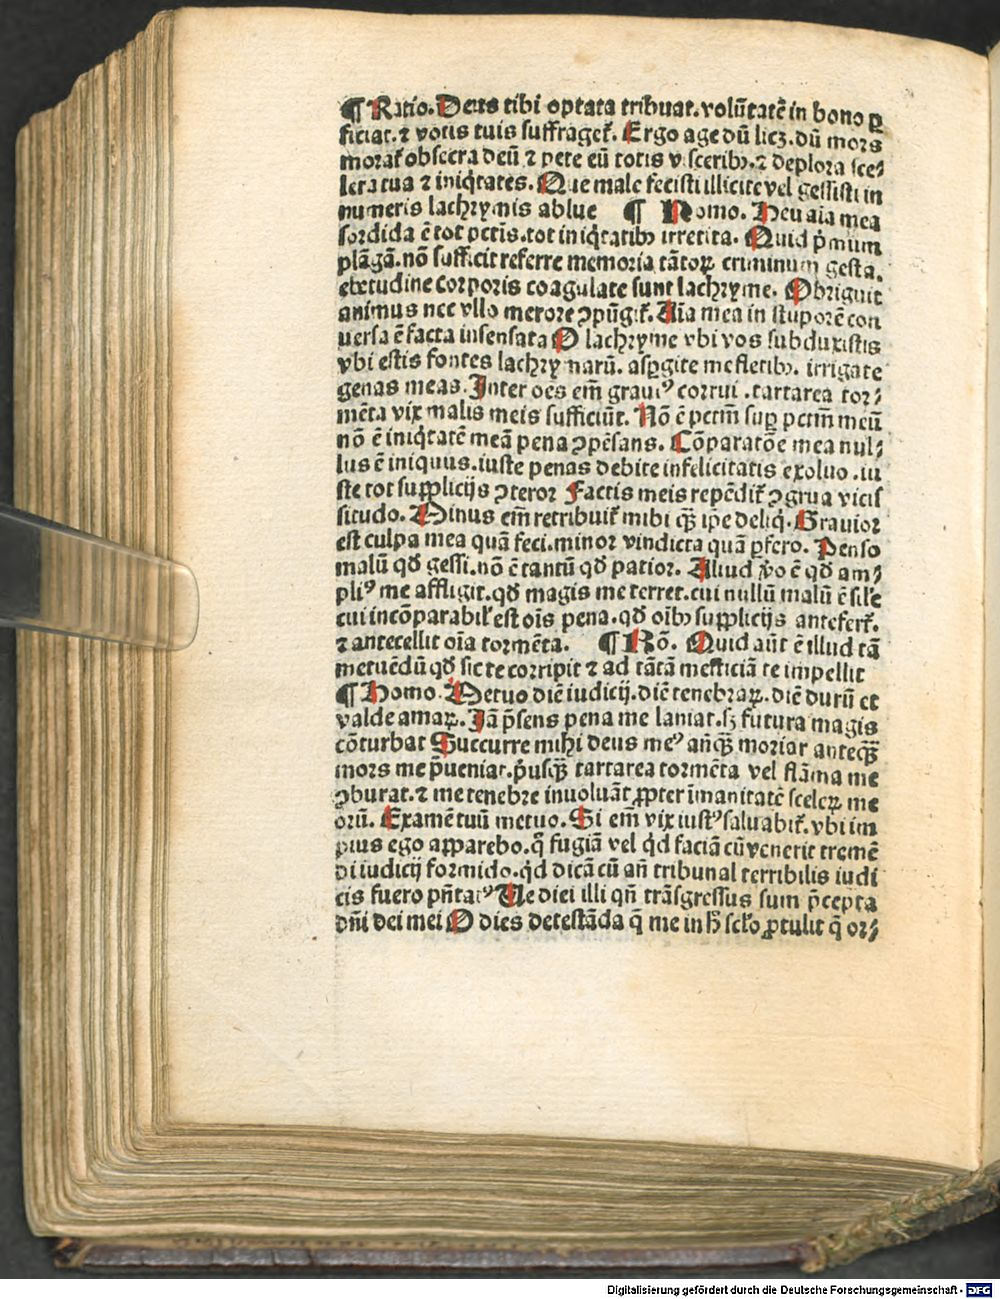 ¶ Ratio. Deus tibi optata tribuat. volūtatē in bono ꝑ
ficiat. ⁊ votis tuis suffraget᷑. Ergo age dū licꝫ. dū mors
morat᷑ obsecra deū ⁊ pete eū totis visceribꝫ. ⁊ deplora sce⸗
lera tua ⁊ iniq̇tates. Que male fecisti illicite vel gessisti in
numeris lachrymis ablue ¶ Homo. Heu aīa mea
sordida ē tot pctīs. tot iniq̇tatibꝫ irretita. Quid ṗmum
plāgā. nō sufficit referre memoria tātoꝝ criminum gesta.
ebetudine corporis coagulate sunt lachryme. Obriguit
animus nec vllo merore ꝯpūgit᷑. Aīa mea in stuporē con
uersa ē facta insensata O lachryme vbi vos subduxistis
vbi estis fontes lachrymarū. aspgite me fletibꝫ. irrigate
genas meas. Inter oēs em̄ grauiꝰ corrui. tartarea tor⸗
mēta vix malis meis sufficiūt. Nō ē pctm̄ suꝑ pctm̄ meū
nō ē iniq̇tatē meā pena ꝯpēsans. Cōparatōe mea nul⸗
lus ē iniquus. iuste penas debite infelicitatis exoluo. iu
ste tot suppliciȷs ꝯteror Factis meis repēdit᷑ ꝯgrua vicis
situdo. Minus em̄ retribuit᷑ mihi qꝫ̄ ip̄e deliq̇. Grauior
est culpa mea quā feci. minor vindicta quā ꝑfero. Penso
malū qd̄ gessi. nō ē tantū qd̄ patior. Illud ṽo ē qd̄ am⸗
pliꝰ me affligit. qd̄ magis me terret. cui nullū malū ē sił'e
cui incōparabił'e est oīs pena. qd̄ oībꝫ suppliciȷs antefert᷑.
⁊ antecellit oīa tormēta. ¶ Rō. Quid aūt ē illud tā
metuēdū qd̄ sic te corripit ⁊ ad tātā mesticiā te impellit
¶ Homo. Metuo diē iudicij. diē tenebraꝝ. diē durū et
valde amaꝝ. Iā p̄sens pena me laniat. sꝫ futura magis
cōturbat Succurre mihi deus meꝰ añqꝫ̄ moriar anteqꝫ̄
mors me p̄ueniat. ṗusqꝫ̄ tartarea tormēta vel flāma me
ꝯburat. ⁊ me tenebre inuoluāt ꝓpter īmanitatē sceleꝝ me
orū. Examē tuū metuo. Si em̄ vix iustꝰ saluabit᷑. vbi im
pius ego apparebo. q̊ fugiā vel q̇d faciā cū venerit tremē
di iudicij formido. q̇d dicā cū añ tribunal terribilis iudi
cis fuero pñtatꝰ Ve diei illi qñ trāsgressus sum p̄cepta
dñi dei mei O dies detestāda q̄ me in h̄ scło ꝓtulit q̄ or⸗
Digitalisierung gefördert durch die Deutsche Forschungsgemeinschaft - DFG